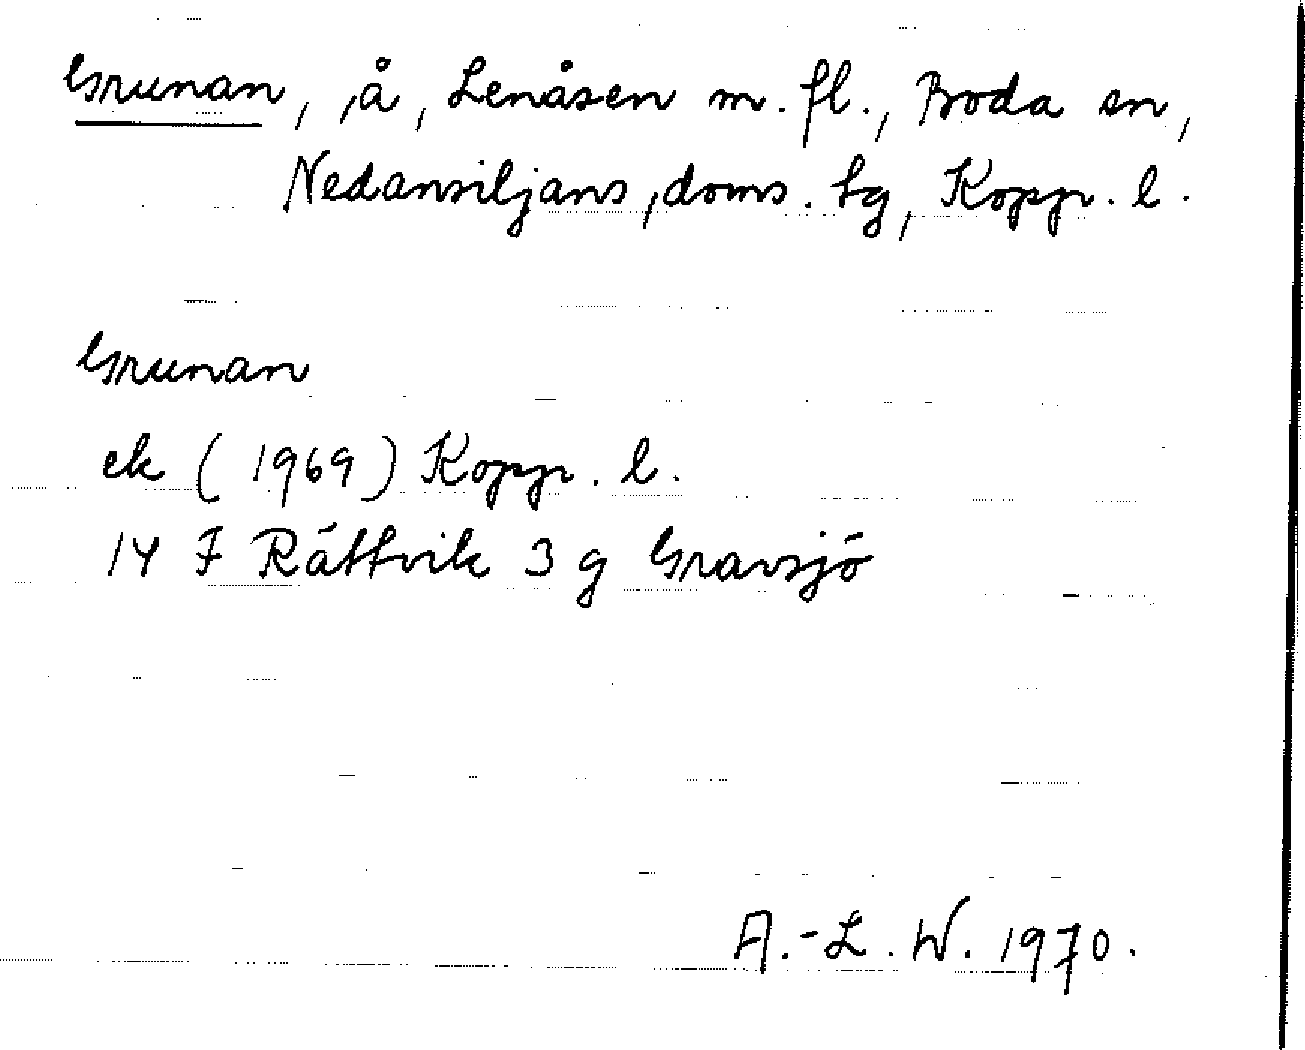 Grunan, å, Lenåsen m. fl., Boda sn,
Nedansiljans doms. tg, Kopp. l.
Grunan
ek (1969) Kopp. l.
14 F Rättvik 3 g Gravsjö
A.-L. W. 1970.